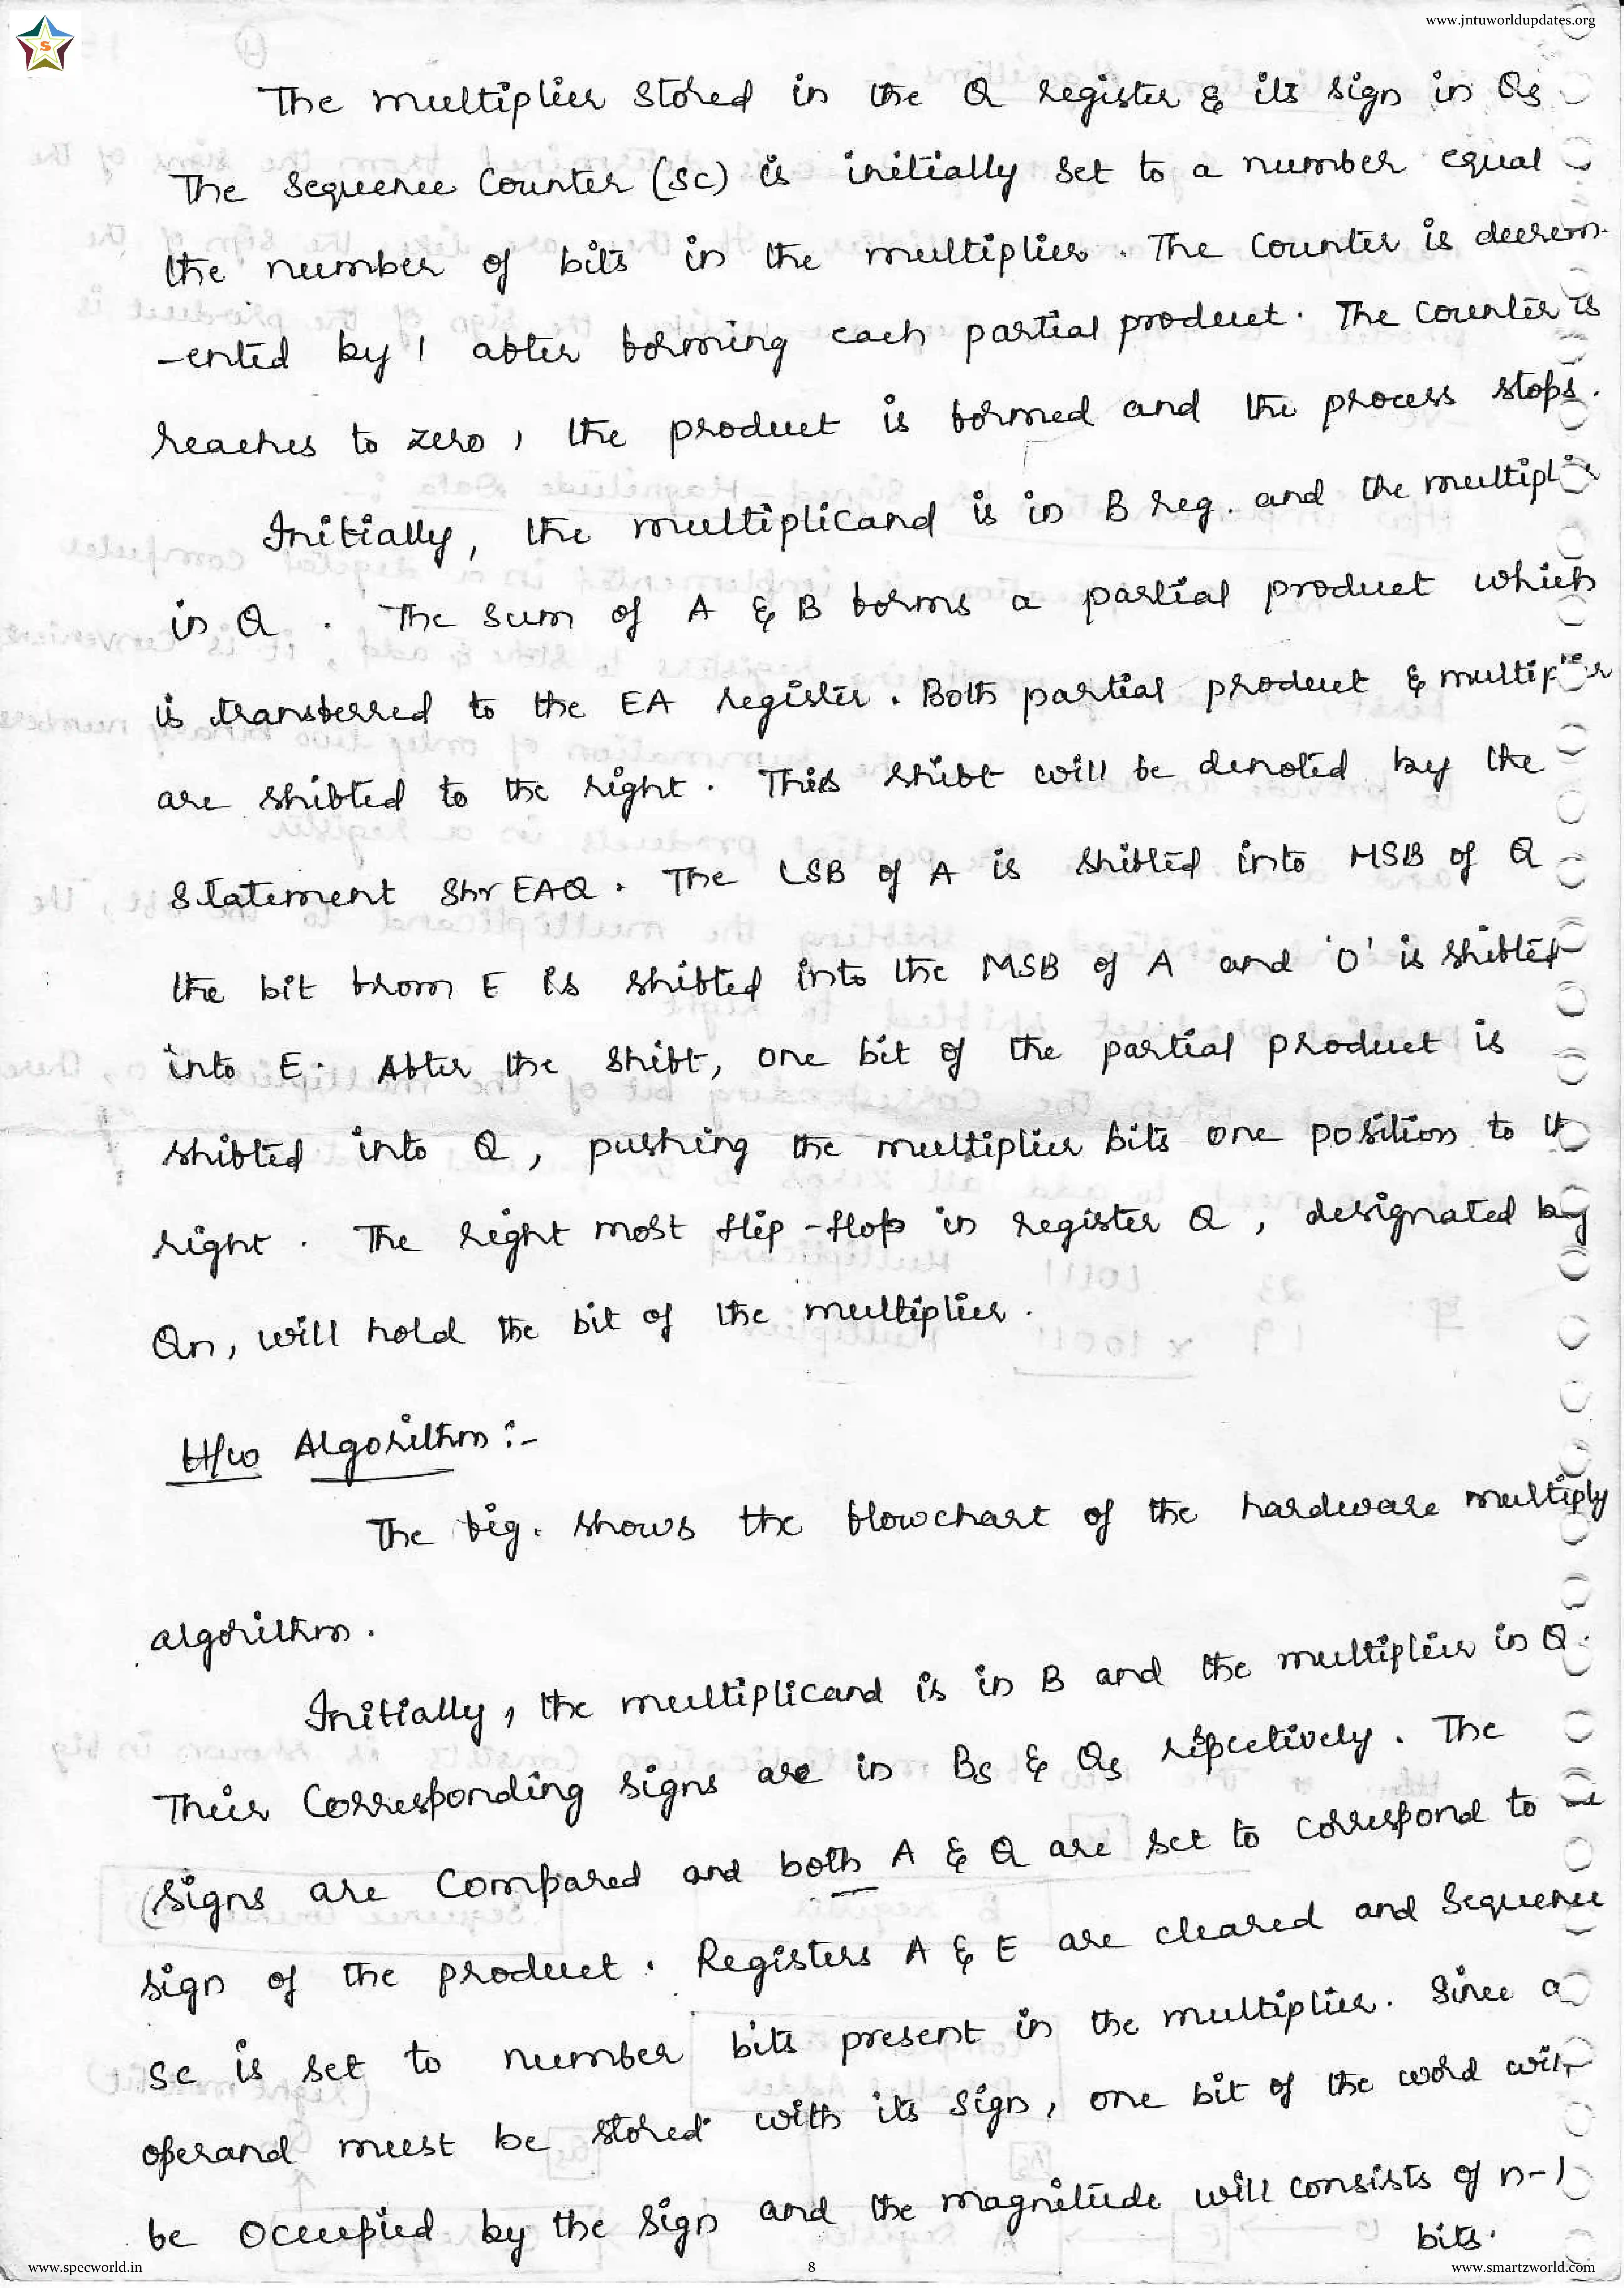 www.jntuworldupdates.org
S
The multiplier stored in the Q register & its sign in Qs
The Sequence Counter (Sc) is initially set to a number equal
the number of bits in the multiplier. The Counter is decrem-
-ented by 1 after forming each partial product. The Counter is
reaches to zero, the product is formed and the process stops.
Initially, the multiplicand is in B reg. and the multiplier
in Q. The Sum of A & B forms a partial product which
is transferred to the EA register. Both partial product & multiplier
are shifted to the right. This shift will be denoted by the
Statement Shr EAQ. The LSB of A is shifted into MSB of Q
the bit from E is shifted into the MSB of A and '0' is shifted
into E. After the shift, one bit of the partial product is
shifted into Q, pushing the multiplier bits one position to
right. The right most flip-flop in register Q, designated by
Qn, will hold the bit of the multiplier.
H/w Algorithm :-
The fig. shows the flowchart of the hardware multiply
algorithm.
Initially, the multiplicand is in B and the multiplier in Q.
Their Corresponding signs are in Bs & Qs respectively. The
signs are Compared and both A & Q are set to correspond to
sign of the product. Registers A & E are cleared and Sequence
Sc is set to number bits present in the multiplier. Since a
operand must be stored with its sign, one bit of the word will
be occupied by the sign and the magnitude will consists of n-1
bits.
www.specworld.in 8 www.smartzworld.com